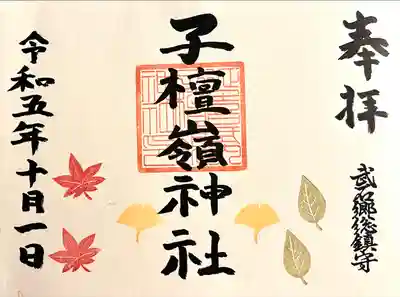 奉拝
武石郷総鎮守
子檀嶺神社
令和五年十月一日